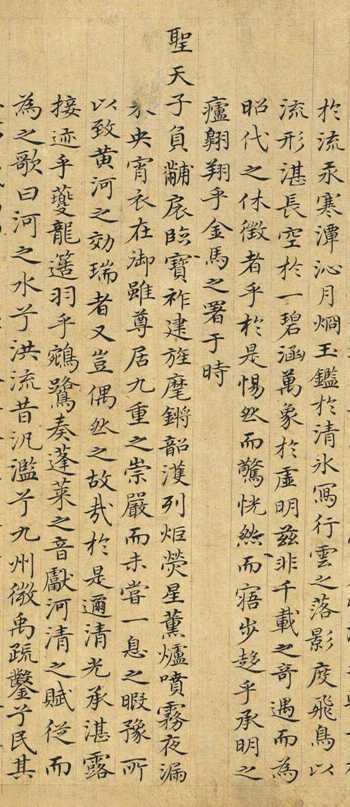 於流汞寒潭沁月烱玉鑑於清氷寫行雲之落影度飛鳥以
流形湛長空於一碧涵萬象於虛明茲非千載之奇遇而為
昭代之休徵者乎於是惕然而驚恍然而寤步趍乎承明之
廬翱翔乎金馬之署于時
聖天子負黼扆臨寶祚建旌麾鏘韶濩列炬熒星薰爐噴霧夜漏
未央宵衣在御雖尊居九重之崇嚴而未嘗一息之暇豫所
以致黃河之効瑞者又豈偶然之故哉於是邇清光承湛露
接迹乎夔龍簉羽乎鵷鷺奏蓬萊之音獻河清之賦從而
為之歌曰河之水兮洪流昔汎濫兮九州微禹疏鑿兮民其